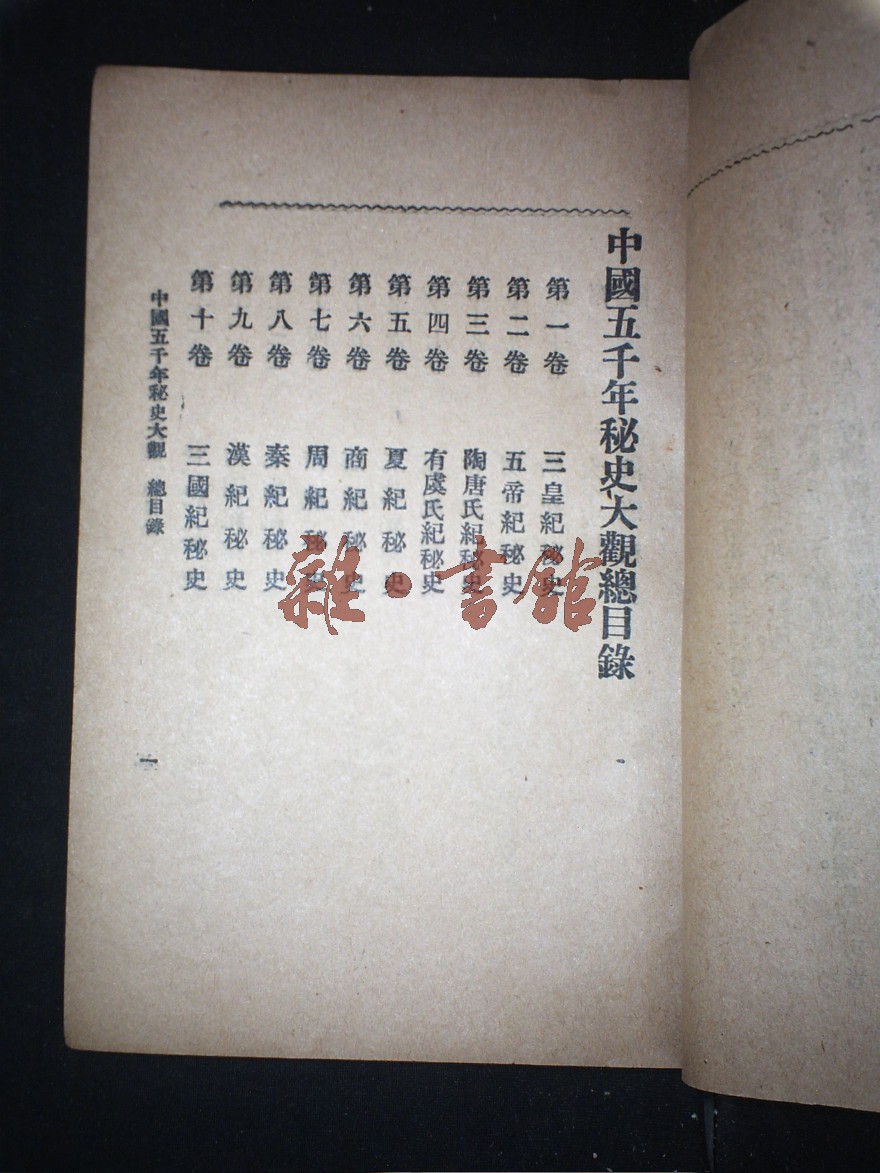 中國五千年秘史大觀總目錄
第一卷 三皇紀秘史
第二卷 五帝紀秘史
第三卷 陶唐氏紀秘史
第四卷 有虞氏紀秘史
第五卷 夏紀秘史
第六卷 商紀秘史
第七卷 周紀秘史
第八卷 秦紀秘史
第九卷 漢紀秘史
第十卷 三國紀秘史
中國五千年秘史大觀 總目錄
一
雜·書館